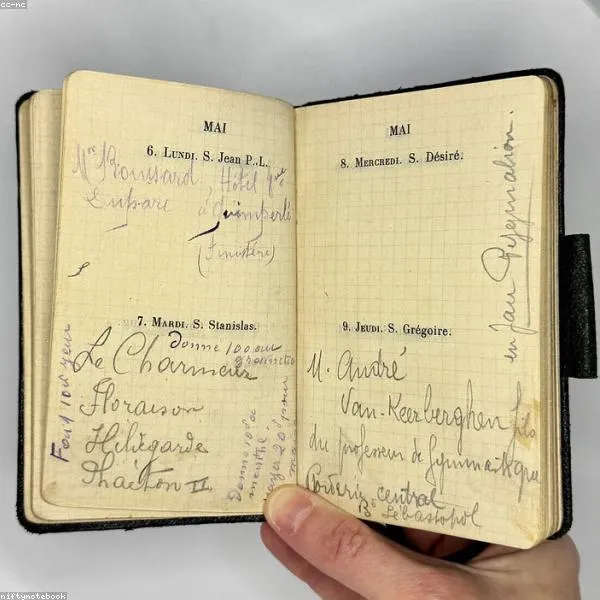 cc-nc
MAI
6. LUNDI. S. Jean P.-L.
Mme Roussard, Hôtel
à Quimperlé
(Finistère)
7. MARDI. S. Stanislas.
Donne 100 au
Le Charmeur
Floraison
Hildegarde
Phaéton II
Fond 10d
Donne 10d a
menthe
payer 20d pour
MAI
8. MERCREDI. S. Désiré.
en Jan Pygmalion.
9. JEUDI. S. Grégoire.
M. André
Van-Keerberghen fils
du professeur de Gymnastique
central
Bd Sébastopol
niftynotebook